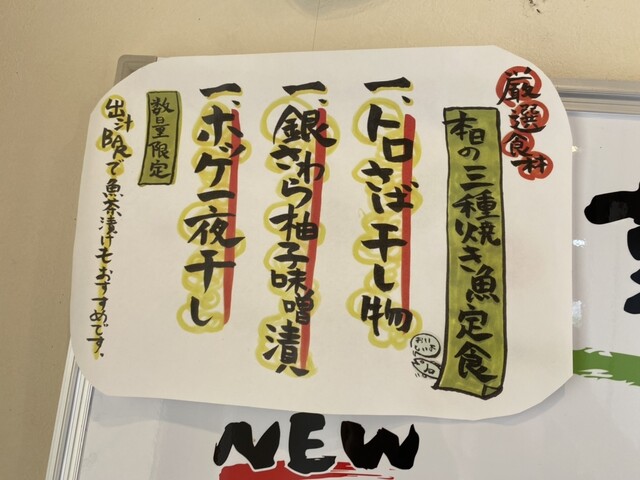 厳選食材
本日の三種焼き魚定食
一、トロさば干し物
一、銀さわら柚子味噌漬
一、ホッケ一夜干し
数量限定
出汁
で魚茶漬けもおすすめです。
NEW